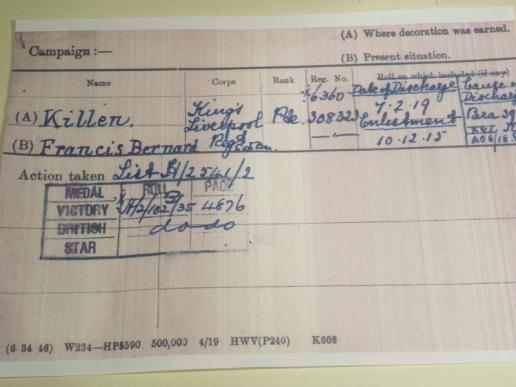 (A) Where decoration was earned.
Campaign :—
(B) Present situation.
Name Corps Rank Reg. No. Roll on which included (if any)
(A) Killen. King's Liverpool Regt Pte 6360 308323 Date of Discharge 7.2.19 Enlistment 10.12.15 Cause Discharge Para
(B) Francis Bernard
Action taken List H/2541/2
MEDAL ROLL PAGE
VICTORY H/2/102 35 4876
BRITISH do do
STAR
(6 34 46) W234—HP5590 500,000 4/19 HWV(P240) K608